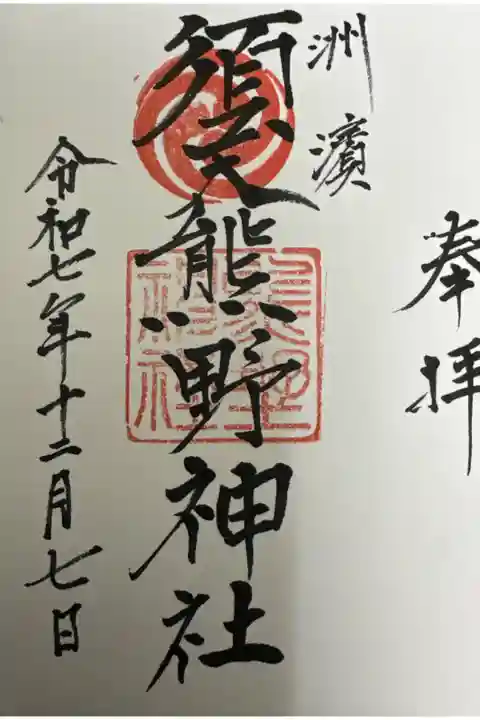 奉拝
洲濱
須天熊野神社
令和七年十二月七日